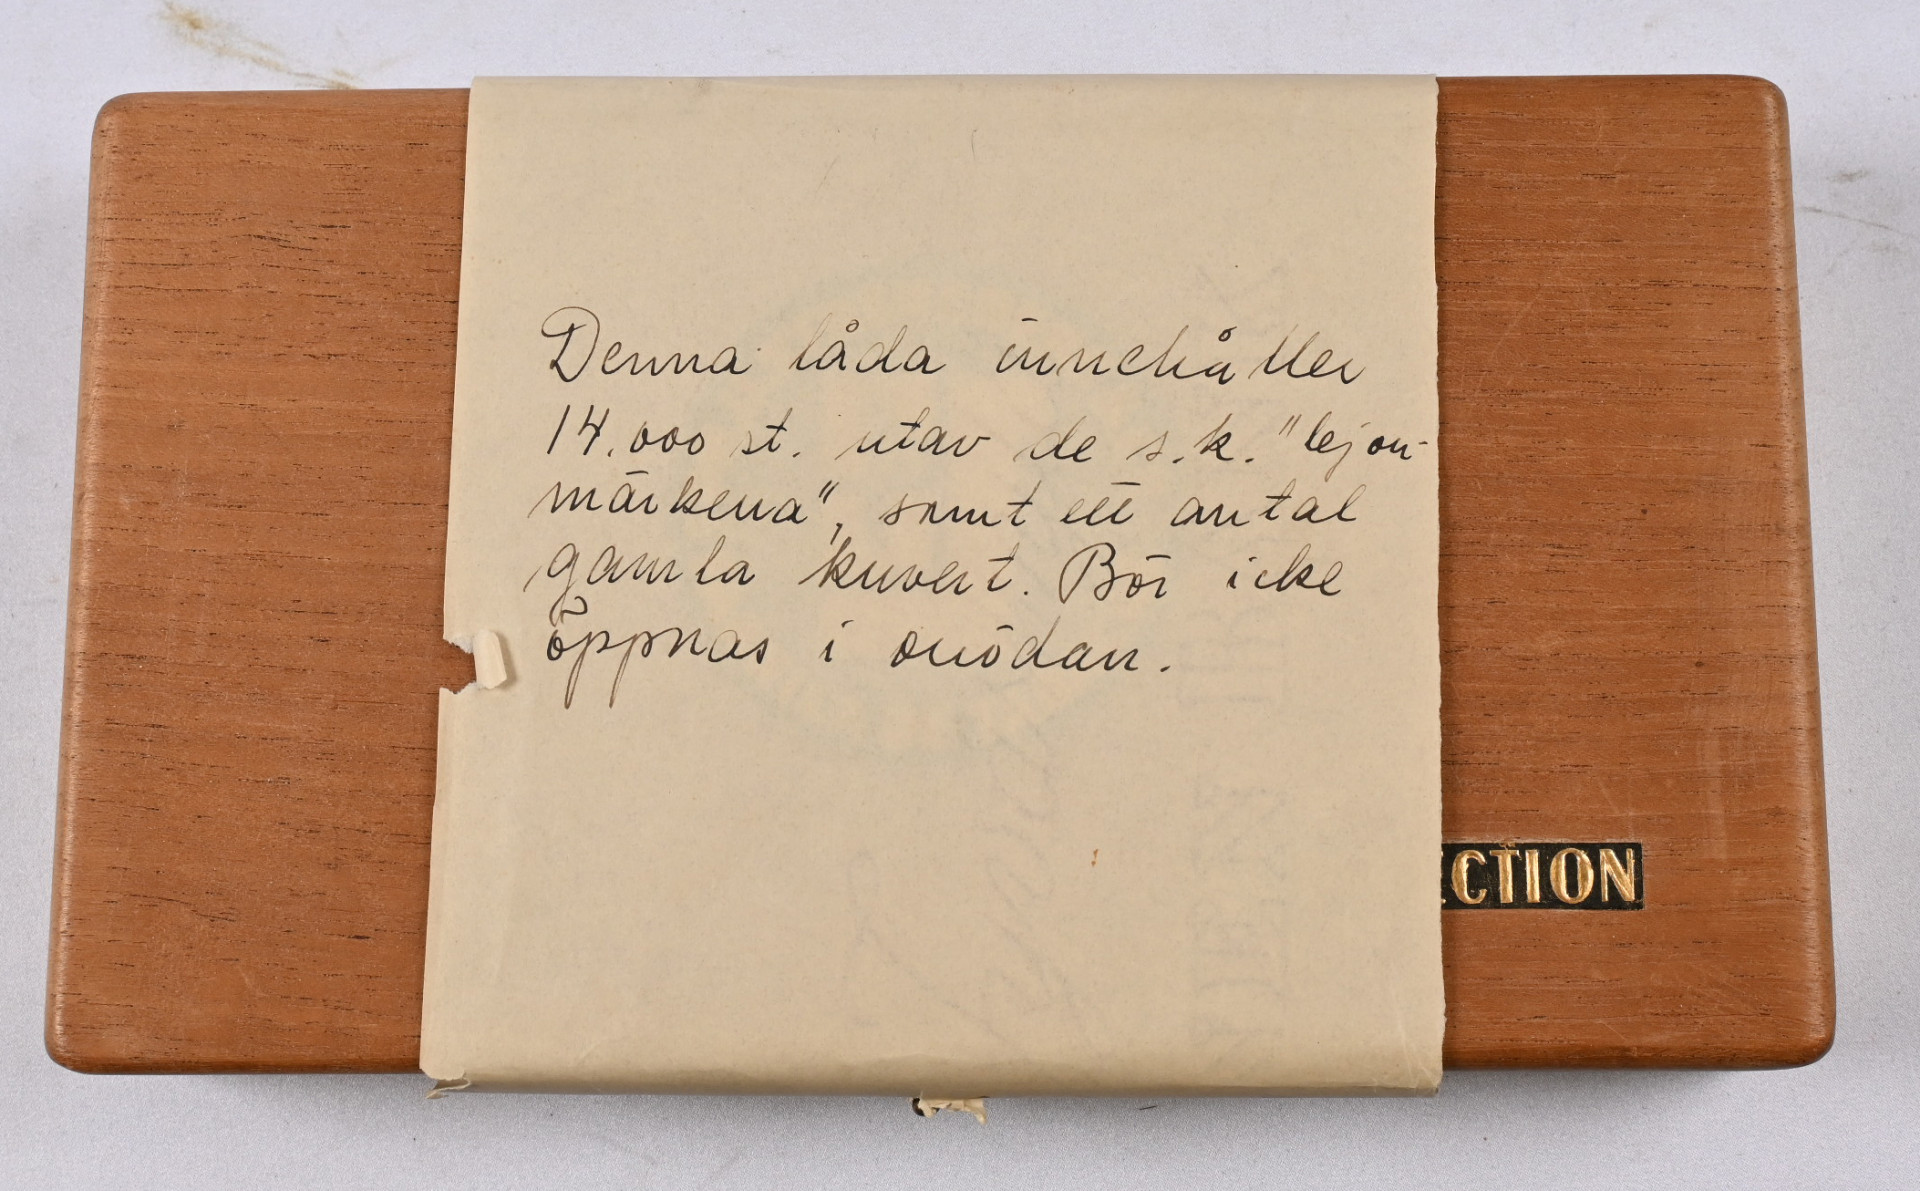 Denna låda innehåller
14.000 st. utav de s.k. "lejon-
märkena", samt ett antal
gamla kuvert. Bör icke
öppnas i onödan.
CTION